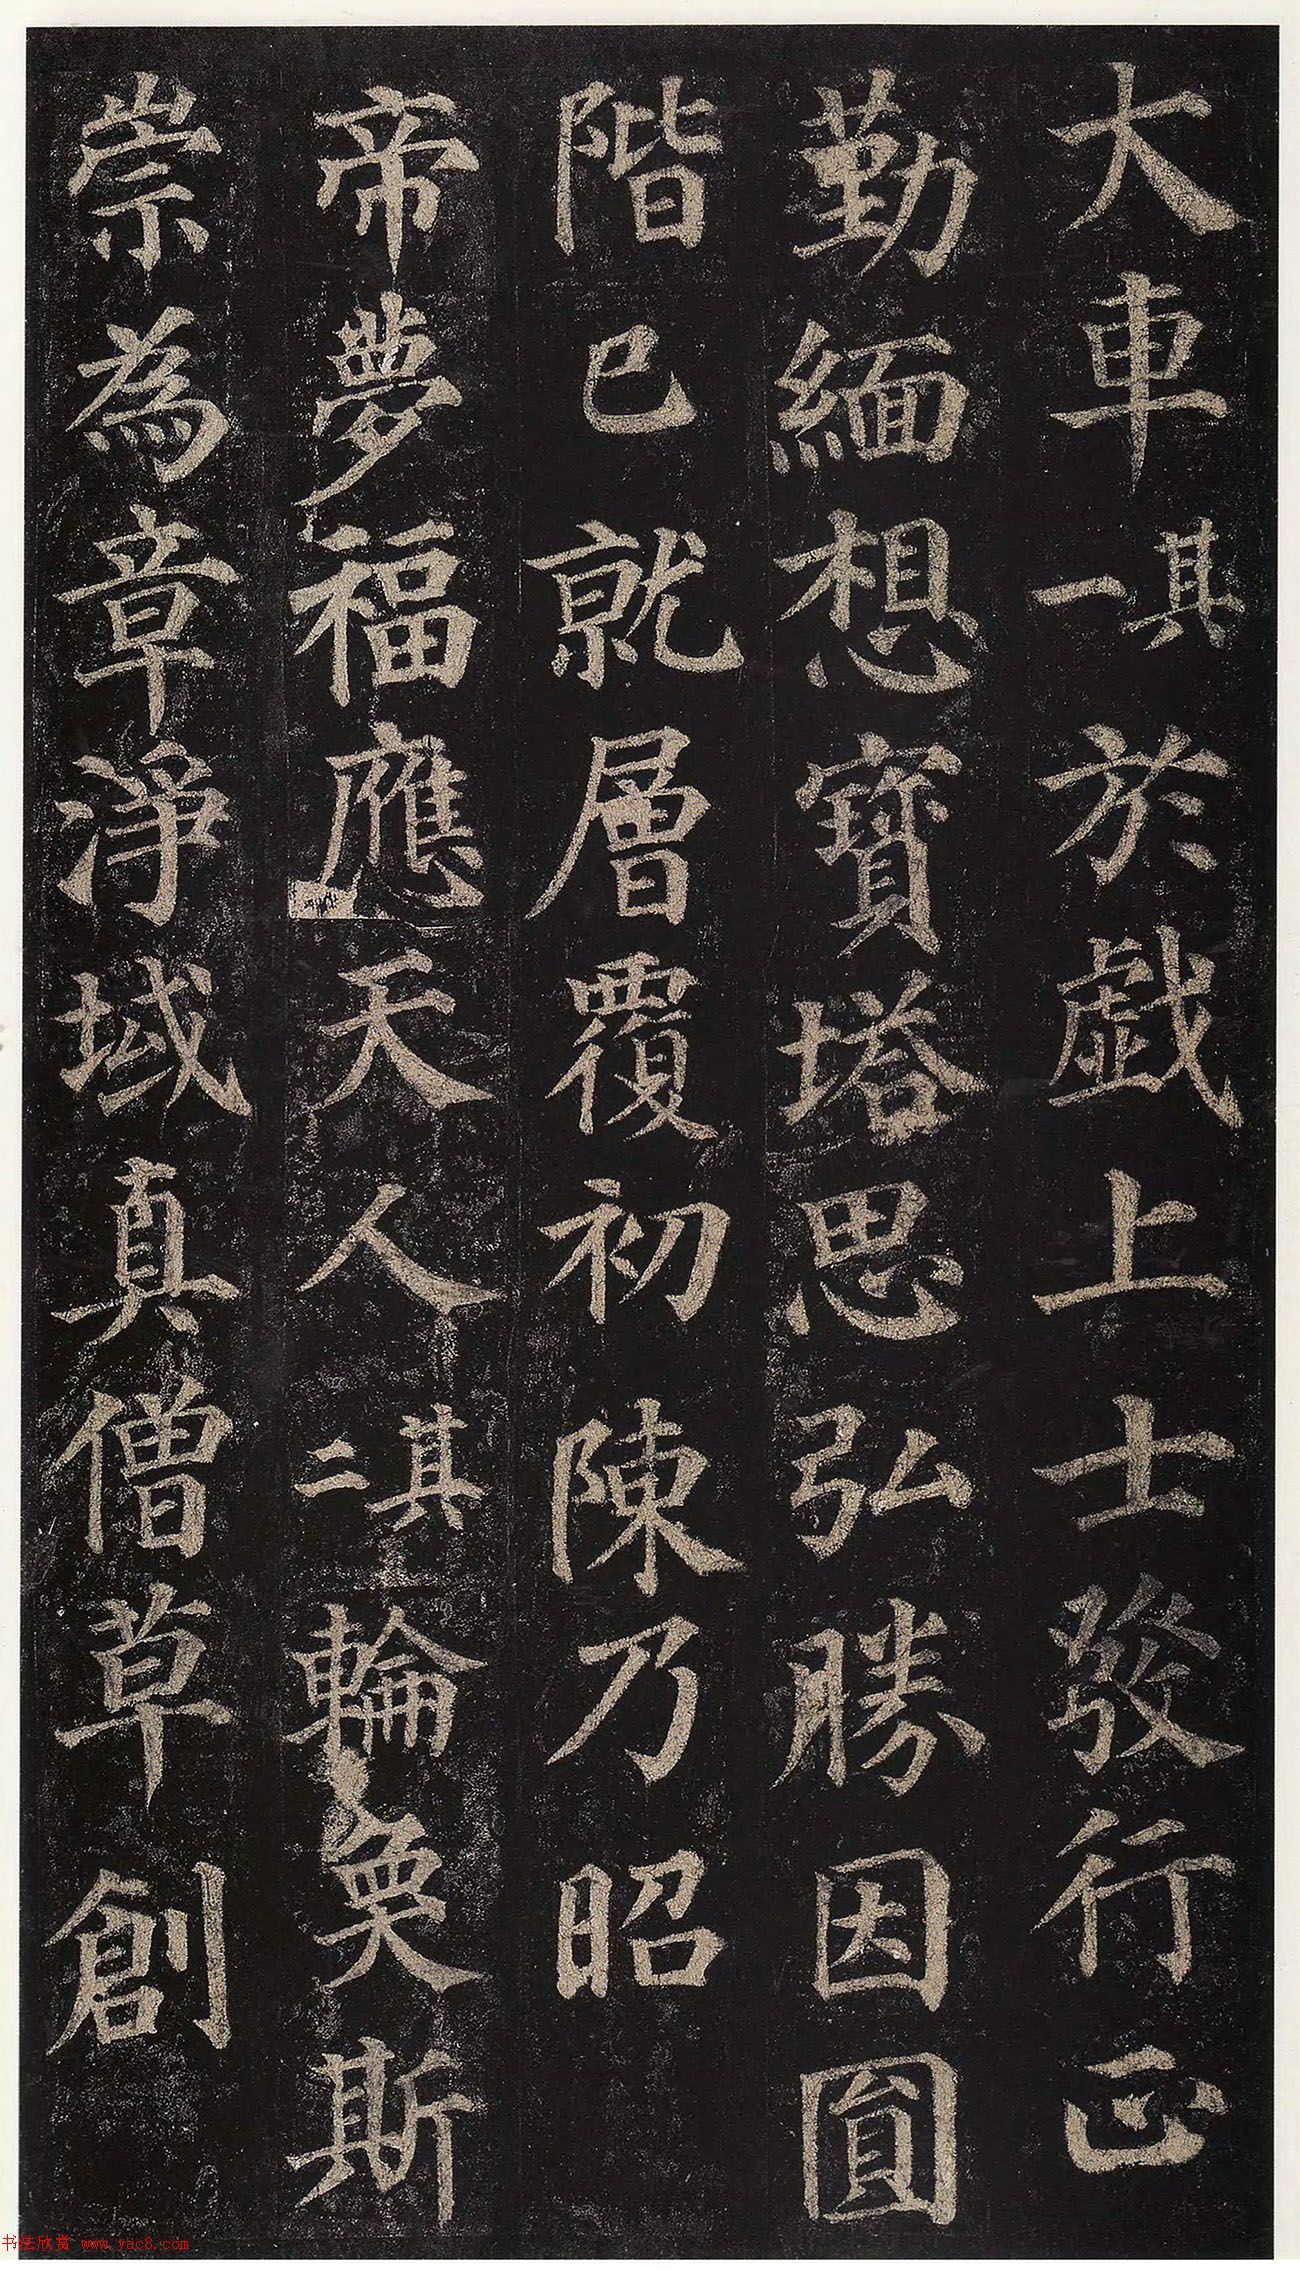 大車其一於戯上士發行正
勤緬想寶塔思弘勝因圓
階已就層覆初陳乃昭
帝夢福應天人其二輪奐斯
崇為章淨域真僧草創
书法欣赏 www.yac8.com